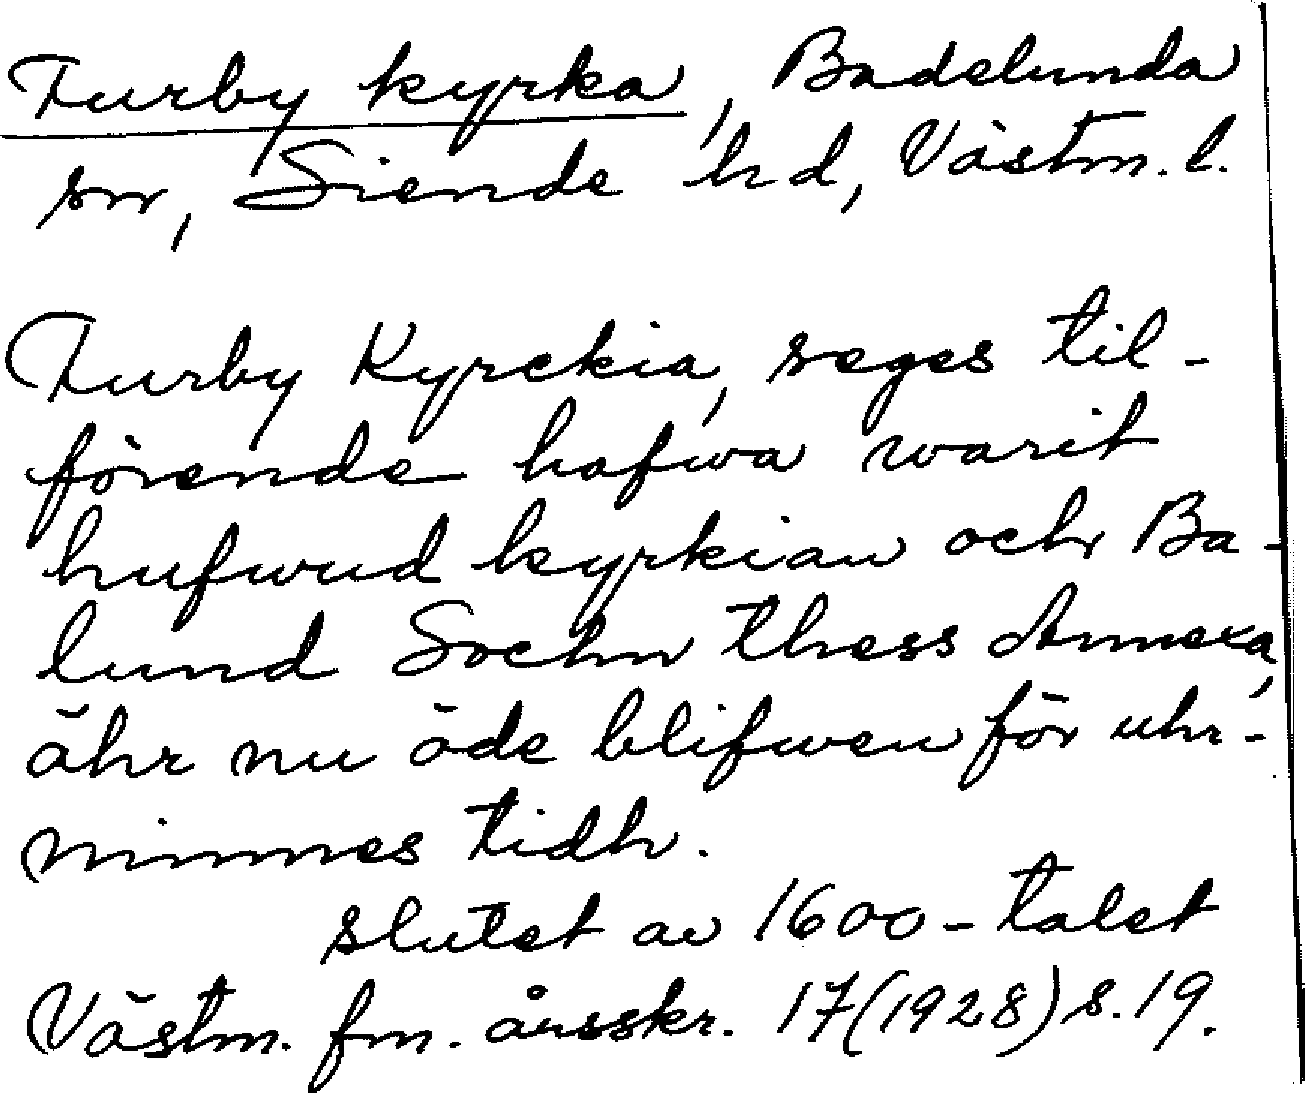 Furby kyrka, Badelunda
sn, Siende hd, Västm. l.
Furby Kyrckia, seges til-
förende hafwa warit
hufwud kyrkian och Ba-
lund Sochn thess Annexa,
ähr nu öde blifwen för uhr-
minnes tidh.
slutet av 1600-talet
Västm. fm. årsskr. 17 (1928) s. 19.